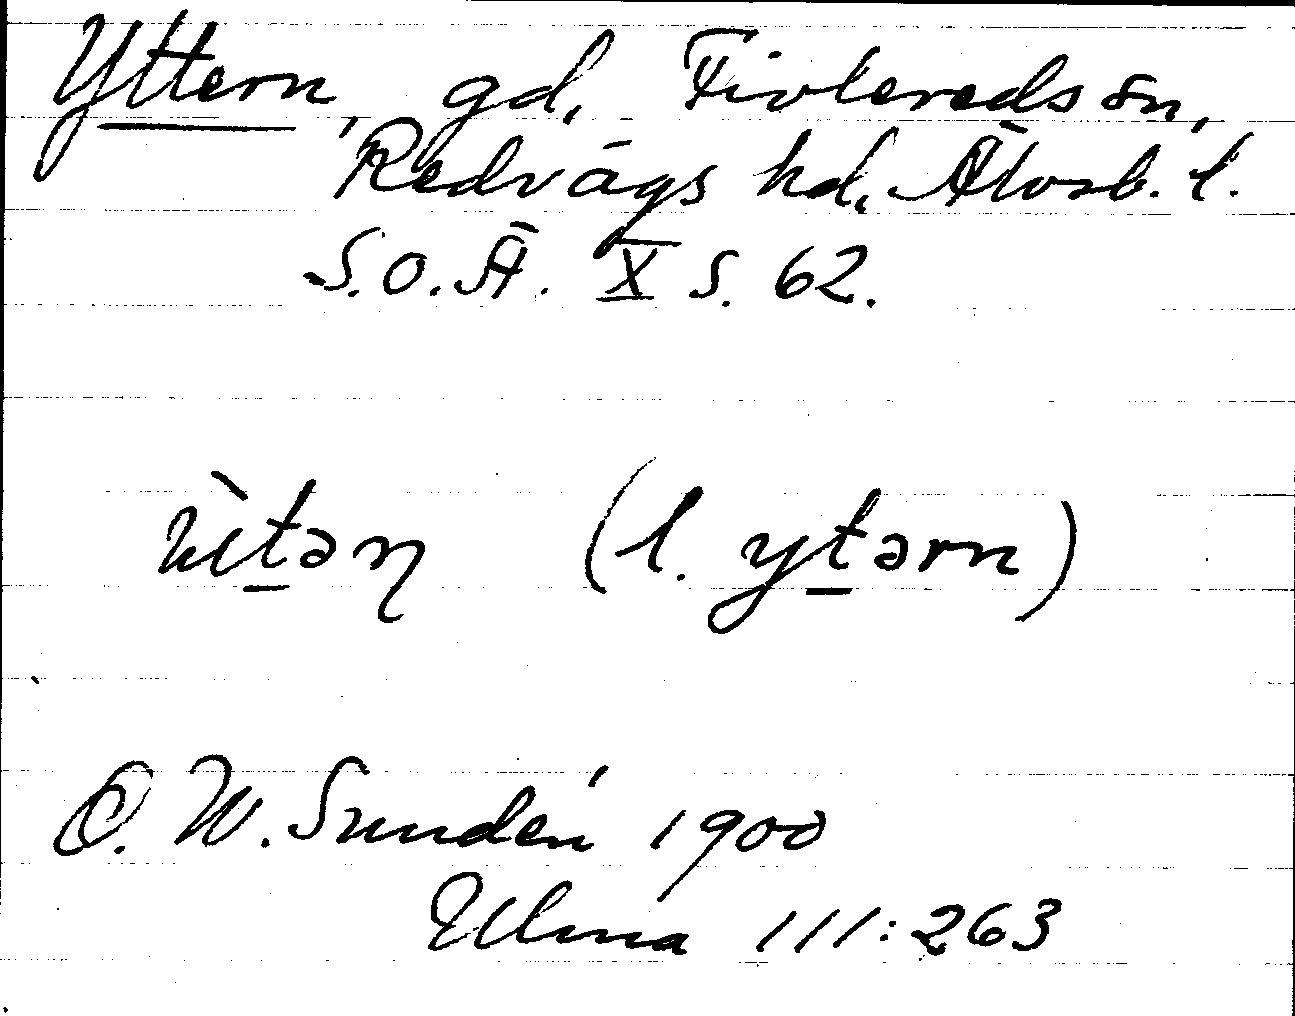 Yttern, gd, Fivlereds sn,
Redvägs hd, Älvsb. l.
S.O.Ä. X s. 62.
(l. ytərn)
D. W. Sundén 1900
Ulma 111:263